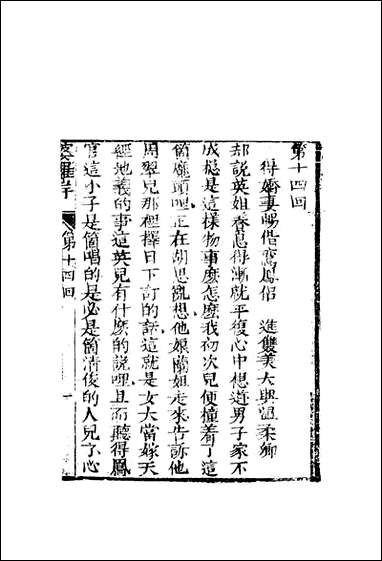 第十四回
得嬌妻暢偕鸞鳳侶　進雙美大興溫柔鄉
却說英姐春悤得漸就平復心中想道男子家不
成搃是這樣物事麼怎麼我初次兒便撞着了這
箇魔頭哩正在胡思亂想他娘蘭姐走來告訴他
周翠兒那裡擇日下訂的話這就是女大當嫁天
經地義的事這英兒有什麽的說哩且而聽得鳳
官這小子是箇唱的是必是箇清俊的人兒了心
婆羅岸　第十四回　一